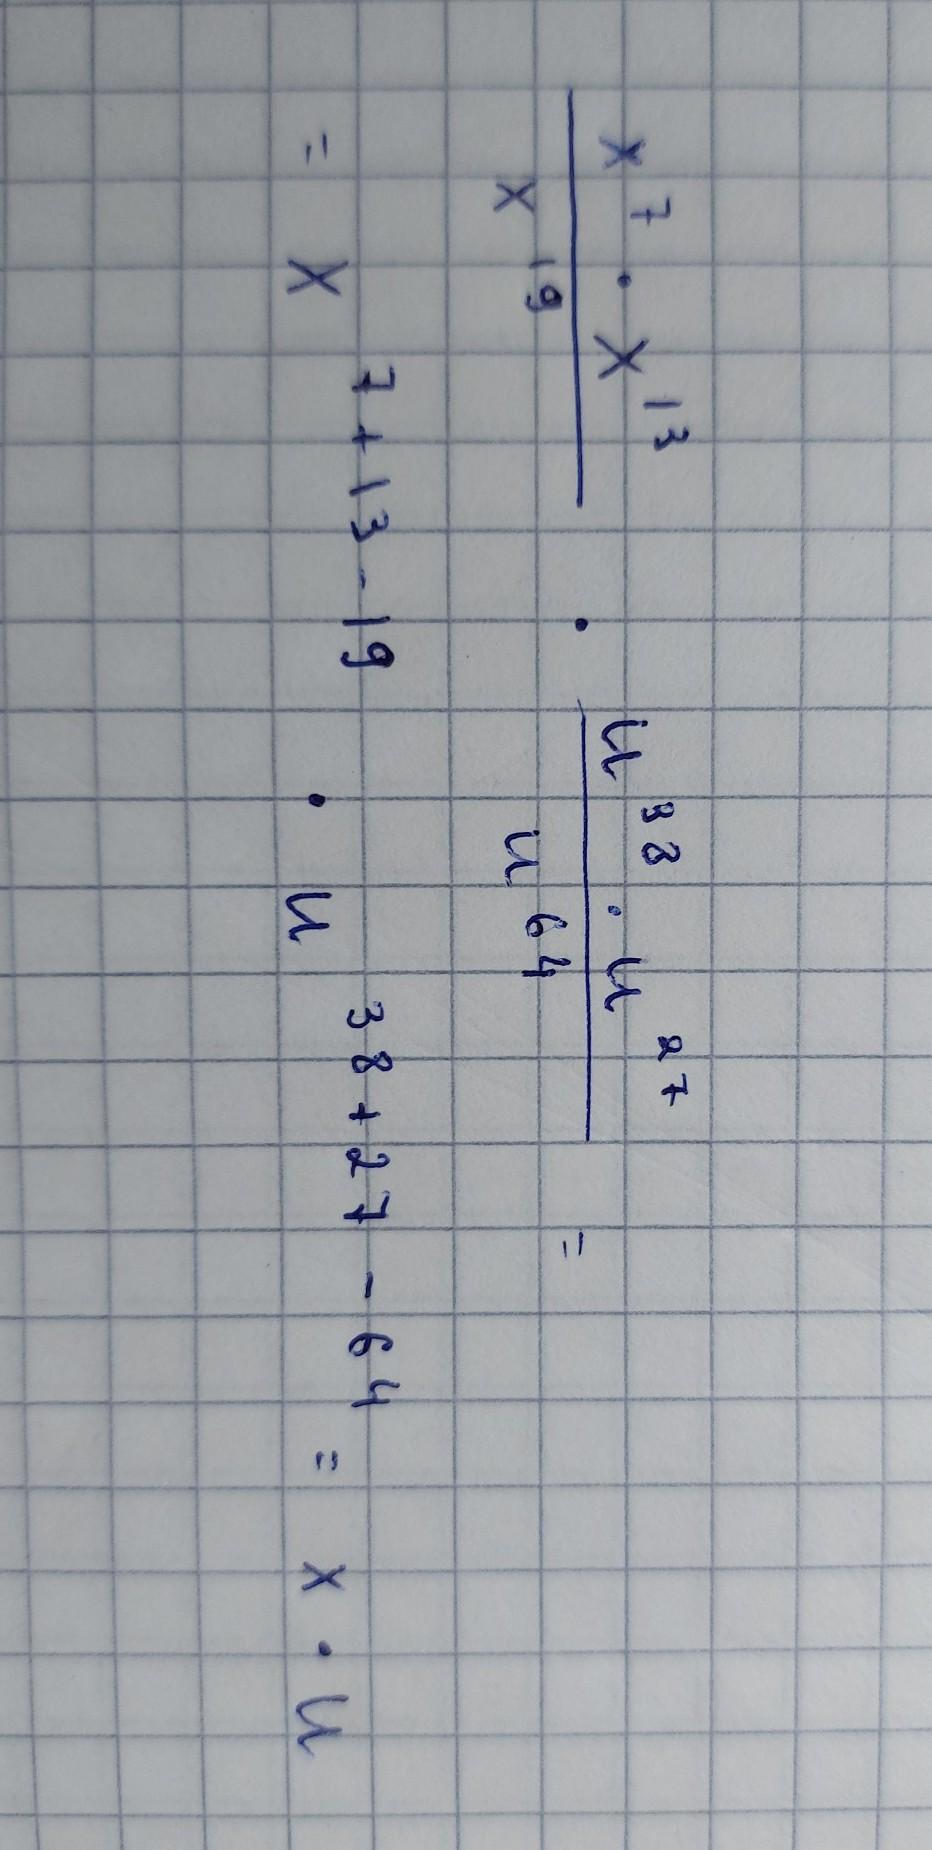 x⁷ · x¹³ / x¹⁹ · u³⁸ · u²⁷ / u⁶⁴ =
= x⁷⁺¹³⁻¹⁹ · u³⁸⁺²⁷⁻⁶⁴ = x · u